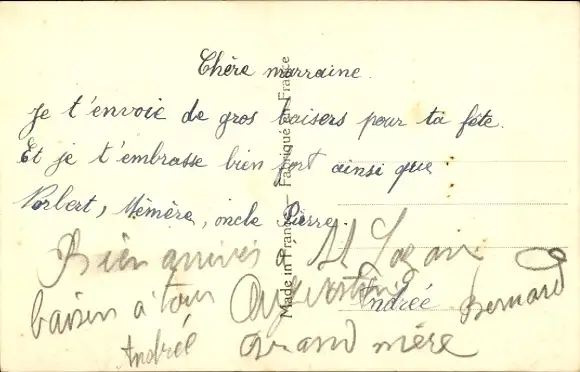 Chère marraine.
Je t'envoie de gros baisers pour ta fête.
Et je t'embrasse bien fort ainsi que
Norbert, Mémère, oncle Pierre.
Andrée
Bien arrivés à St
baisers à tous
Bernard
Andrée Grand mère
Made in France — Fabriqué en France